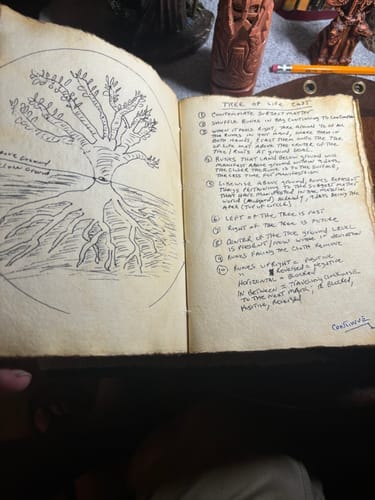 Above Ground
Below Ground
TREE OF LIFE CAST
① CONTEMPLATE SUBJECT MATTER
② SHUFFLE RUNES IN BAG CONTINUING TO CONTEMPLATE
③ WHEN IT FEELS RIGHT, TAKE ABOUT ½ OF ALL
THE RUNES IN YOUR HAND, SHAKE THEM IN
BOTH HANDS, & CAST THEM ONTO THE TREE
OF LIFE JUST ABOVE THE CENTER OF THE
TREE / ROOTS AT GROUND LEVEL
④ RUNES THAT LAND BELOW GROUND WILL
MANIFEST ABOVE GROUND WITHIN 9 DAYS,
THE CLOSER THE RUNE IS TO THE SURFACE,
THE LESS TIME FOR MANIFESTATION
⑤ LIKEWISE ABOVE GROUND, RUNES REPRESENT
THINGS PERTAINING TO THE SUBJECT MATTER
THAT HAVE MANIFESTED IN THE MATERIAL
WORLD (MIDGARD) ALREADY, 9 DAYS BEING THE
APEX (TOP OF CIRCLE)
⑥ LEFT OF THE TREE IS PAST
⑦ RIGHT OF THE TREE IS FUTURE
⑧ CENTER OF THE TREE GROUND LEVEL
IS PRESENT / NOW WITHIN IN DEVIATION
⑨ RUNES FACING THE CLOTH REMOVE
⑩ RUNES UPRIGHT = POSITIVE
" REVERSED = NEGATIVE
HORIZONTAL = BLOCKED
IN BETWEEN = TRAVELING CLOCKWISE
TO THE NEXT MARK, IE BLOCKED,
POSITIVE, REVERSED
CONTINUED